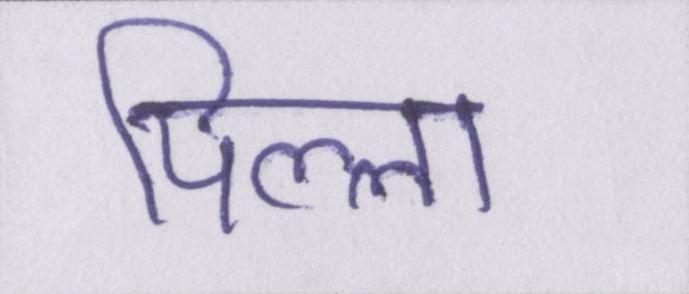 पिल्ला